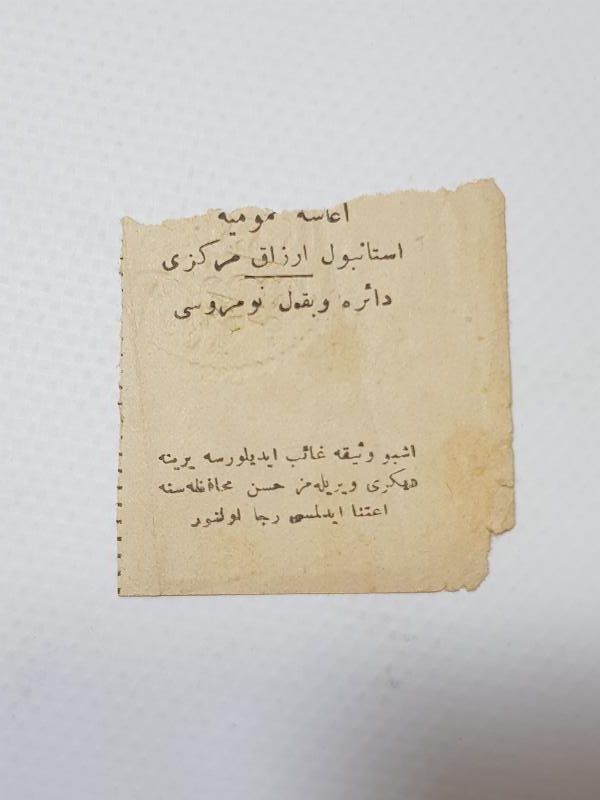 اعاشه عمومیه
استانبول ارزاق مركزی
دائره وبقال نومروسی
اشبو وثیقه غائب ایدیلورسه یرینه
دیكری ویریله‌مز حسن محافظه‌سنه
اعتنا ایدلمسی رجا اولنور